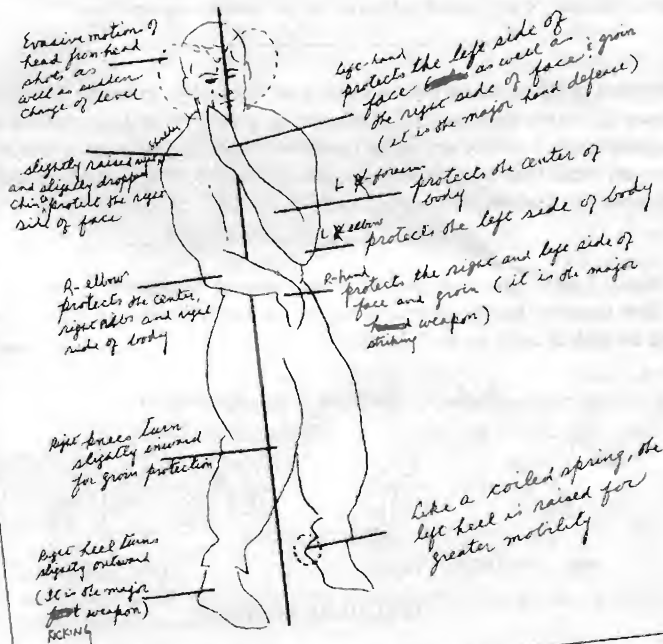 Evasive motion of
head from head
shots as
well as sudden
change of level
shoulder
slightly raised right
and slightly dropped
chin protect the right
side of face
R- elbow
protects the center,
right ribs and right
side of body
Right knees turn
slightly inward
for groin protection
Right heel turns
slightly outward
(It is the major
weapon)
KICKING
Left-hand
protects the left side of
face as well as
the right side of face & groin
(it is the major hand defence)
L forearm
protects the center of
body
L elbow
protects the left side of body
R-hand
protects the right and left side of
face and groin (it is the major
weapon)
striking
Like a coiled spring, the
left heel is raised for
greater mobility